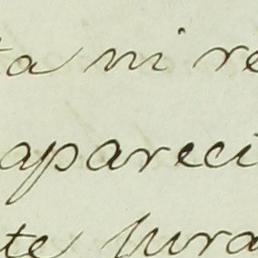 ta ni re
apareci
te jura